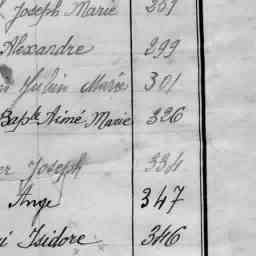 Joseph Marie 261
Alexandre 299
Julien Marie 301
Bapte Aimé Marie 326
Joseph 334
Ange 347
Isidore 346